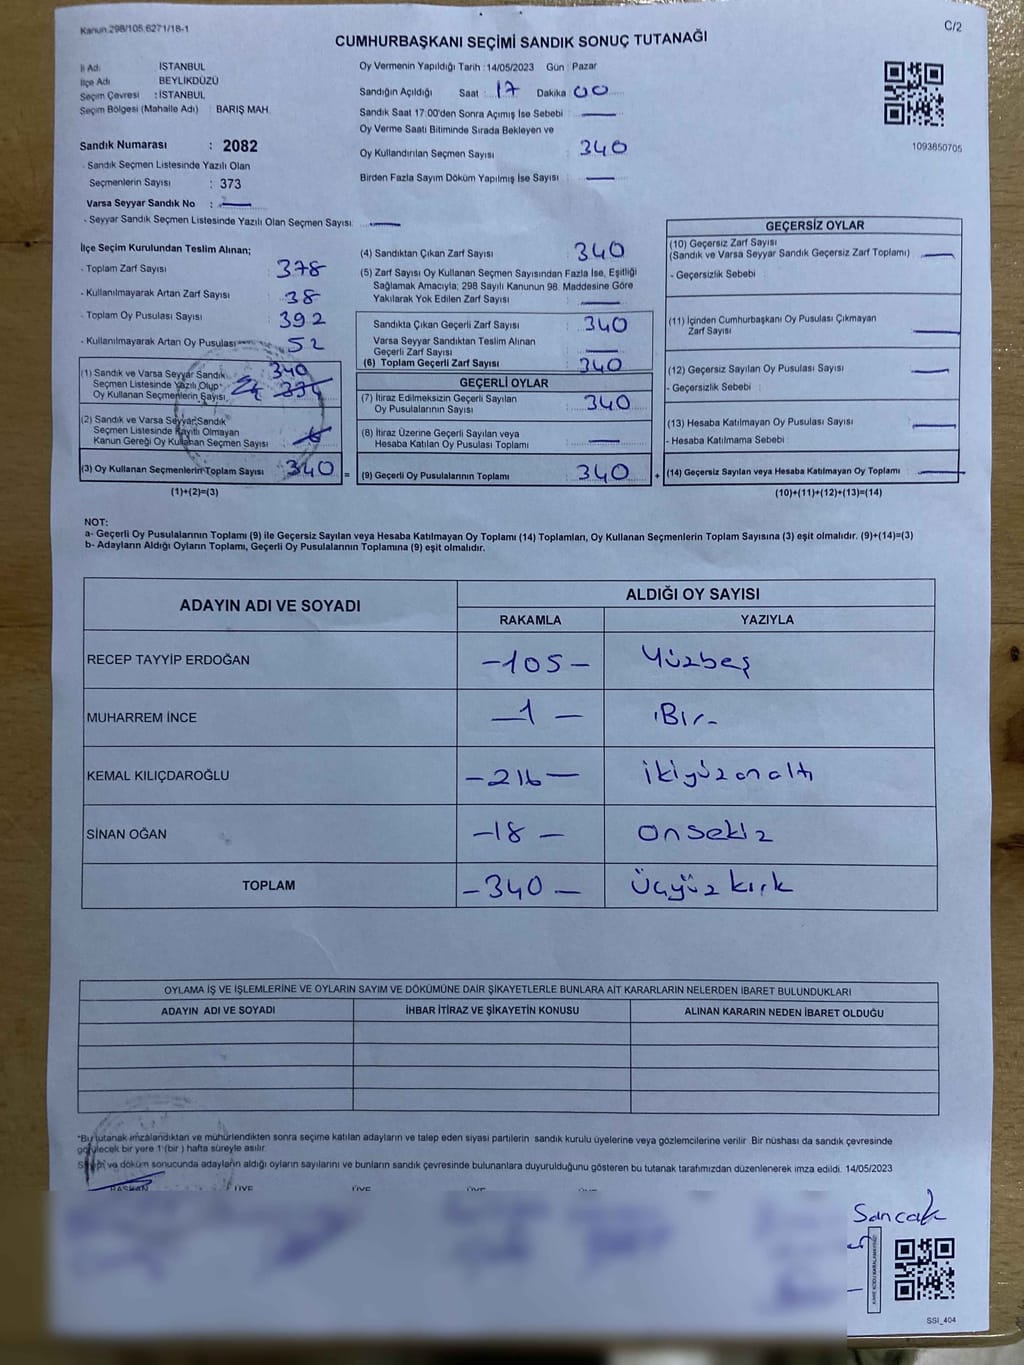 Kanun:298/105,6271/18-1
C/2
CUMHURBAŞKANI SEÇİMİ SANDIK SONUÇ TUTANAĞI
İl Adı : İSTANBUL
İlçe Adı : BEYLİKDÜZÜ
Seçim Çevresi : İSTANBUL
Seçim Bölgesi (Mahalle Adı) : BARIŞ MAH.
Sandık Numarası : 2082
- Sandık Seçmen Listesinde Yazılı Olan
Seçmenlerin Sayısı : 373
Varsa Seyyar Sandık No : —
- Seyyar Sandık Seçmen Listesinde Yazılı Olan Seçmen Sayısı: —
Oy Vermenin Yapıldığı Tarih : 14/05/2023 Gün : Pazar
Sandığın Açıldığı Saat : 17 Dakika : 00
Sandık Saat 17:00'den Sonra Açımış İse Sebebi : —
Oy Verme Saati Bitiminde Sırada Bekleyen ve
Oy Kullandırılan Seçmen Sayısı : 340
Birden Fazla Sayım Döküm Yapılmış İse Sayısı : —
1093850705
İlçe Seçim Kurulundan Teslim Alınan;
- Toplam Zarf Sayısı : 378
- Kullanılmayarak Artan Zarf Sayısı : 38
- Toplam Oy Pusulası Sayısı : 392
- Kullanılmayarak Artan Oy Pusulası : 52
(1) Sandık ve Varsa Seyyar Sandık
Seçmen Listesinde Yazılı Olup
Oy Kullanan Seçmenlerin Sayısı 340 334
(2) Sandık ve Varsa Seyyar Sandık
Seçmen Listesinde Kayıtlı Olmayan
Kanun Gereği Oy Kullanan Seçmen Sayısı : 6
(3) Oy Kullanan Seçmenlerin Toplam Sayısı 340 =
(1)+(2)=(3)
(4) Sandıktan Çıkan Zarf Sayısı 340
(5) Zarf Sayısı Oy Kullanan Seçmen Sayısından Fazla İse, Eşitliği
Sağlamak Amacıyla; 298 Sayılı Kanunun 98. Maddesine Göre
Yakılarak Yok Edilen Zarf Sayısı : —
Sandıkta Çıkan Geçerli Zarf Sayısı : 340
Varsa Seyyar Sandıktan Teslim Alınan
Geçerli Zarf Sayısı : —
(6) Toplam Geçerli Zarf Sayısı : 340
GEÇERLİ OYLAR
(7) İtiraz Edilmeksizin Geçerli Sayılan
Oy Pusulalarının Sayısı : 340
(8) İtiraz Üzerine Geçerli Sayılan veya
Hesaba Katılan Oy Pusulası Toplamı : —
(9) Geçerli Oy Pusulalarının Toplamı : 340 +
GEÇERSİZ OYLAR
(10) Geçersiz Zarf Sayısı
(Sandık ve Varsa Seyyar Sandık Geçersiz Zarf Toplamı) : —
- Geçersizlik Sebebi :
(11) İçinden Cumhurbaşkanı Oy Pusulası Çıkmayan
Zarf Sayısı : —
(12) Geçersiz Sayılan Oy Pusulası Sayısı : —
- Geçersizlik Sebebi :
(13) Hesaba Katılmayan Oy Pusulası Sayısı : —
- Hesaba Katılmama Sebebi :
(14) Geçersiz Sayılan veya Hesaba Katılmayan Oy Toplamı : —
(10)+(11)+(12)+(13)=(14)
NOT:
a- Geçerli Oy Pusulalarının Toplamı (9) ile Geçersiz Sayılan veya Hesaba Katılmayan Oy Toplamı (14) Toplamları, Oy Kullanan Seçmenlerin Toplam Sayısına (3) eşit olmalıdır. (9)+(14)=(3)
b- Adayların Aldığı Oyların Toplamı, Geçerli Oy Pusulalarının Toplamına (9) eşit olmalıdır.
ADAYIN ADI VE SOYADI
ALDIĞI OY SAYISI
RAKAMLA YAZIYLA
RECEP TAYYİP ERDOĞAN -105- Yüzbeş
MUHARREM İNCE -1- Bir-
KEMAL KILIÇDAROĞLU -216- ikiyüzonaltı
SİNAN OĞAN -18- onsekiz
TOPLAM -340- Üçyüzkırk
OYLAMA İŞ VE İŞLEMLERİNE VE OYLARIN SAYIM VE DÖKÜMÜNE DAİR ŞİKAYETLERLE BUNLARA AİT KARARLARIN NELERDEN İBARET BULUNDUKLARI
ADAYIN ADI VE SOYADI İHBAR İTİRAZ VE ŞİKAYETİN KONUSU ALINAN KARARIN NEDEN İBARET OLDUĞU
*Bu tutanak imzalandıktan ve mühürlendikten sonra seçime katılan adayların ve talep eden siyasi partilerin sandık kurulu üyelerine veya gözlemcilerine verilir. Bir nüshası da sandık çevresinde
görülecek bir yere 1 (bir) hafta süreyle asılır.
Sayım ve döküm sonucunda adayların aldığı oyların sayılarını ve bunların sandık çevresinde bulunanlara duyurulduğunu gösteren bu tutanak tarafımızdan düzenlenerek imza edildi. 14/05/2023
BAŞKAN ÜYE ÜYE ÜYE ÜYE
Sancak
SSI_404